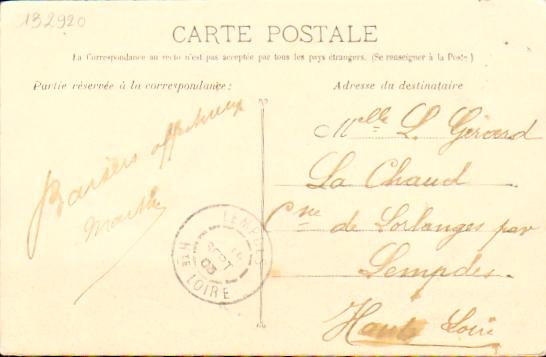 132920
CARTE POSTALE
La Correspondance au recto n'est pas acceptée par tous les pays étrangers. (Se renseigner à la Poste)
Partie réservée à la correspondance:
Adresse du destinataire
Baisers affectueux
Marthe
Melle L. Gérard
La Chaud
Cne de Lorlanges par
Lempdes
Haute Loire
LEMPDES
SEPT
05
HTE LOIRE